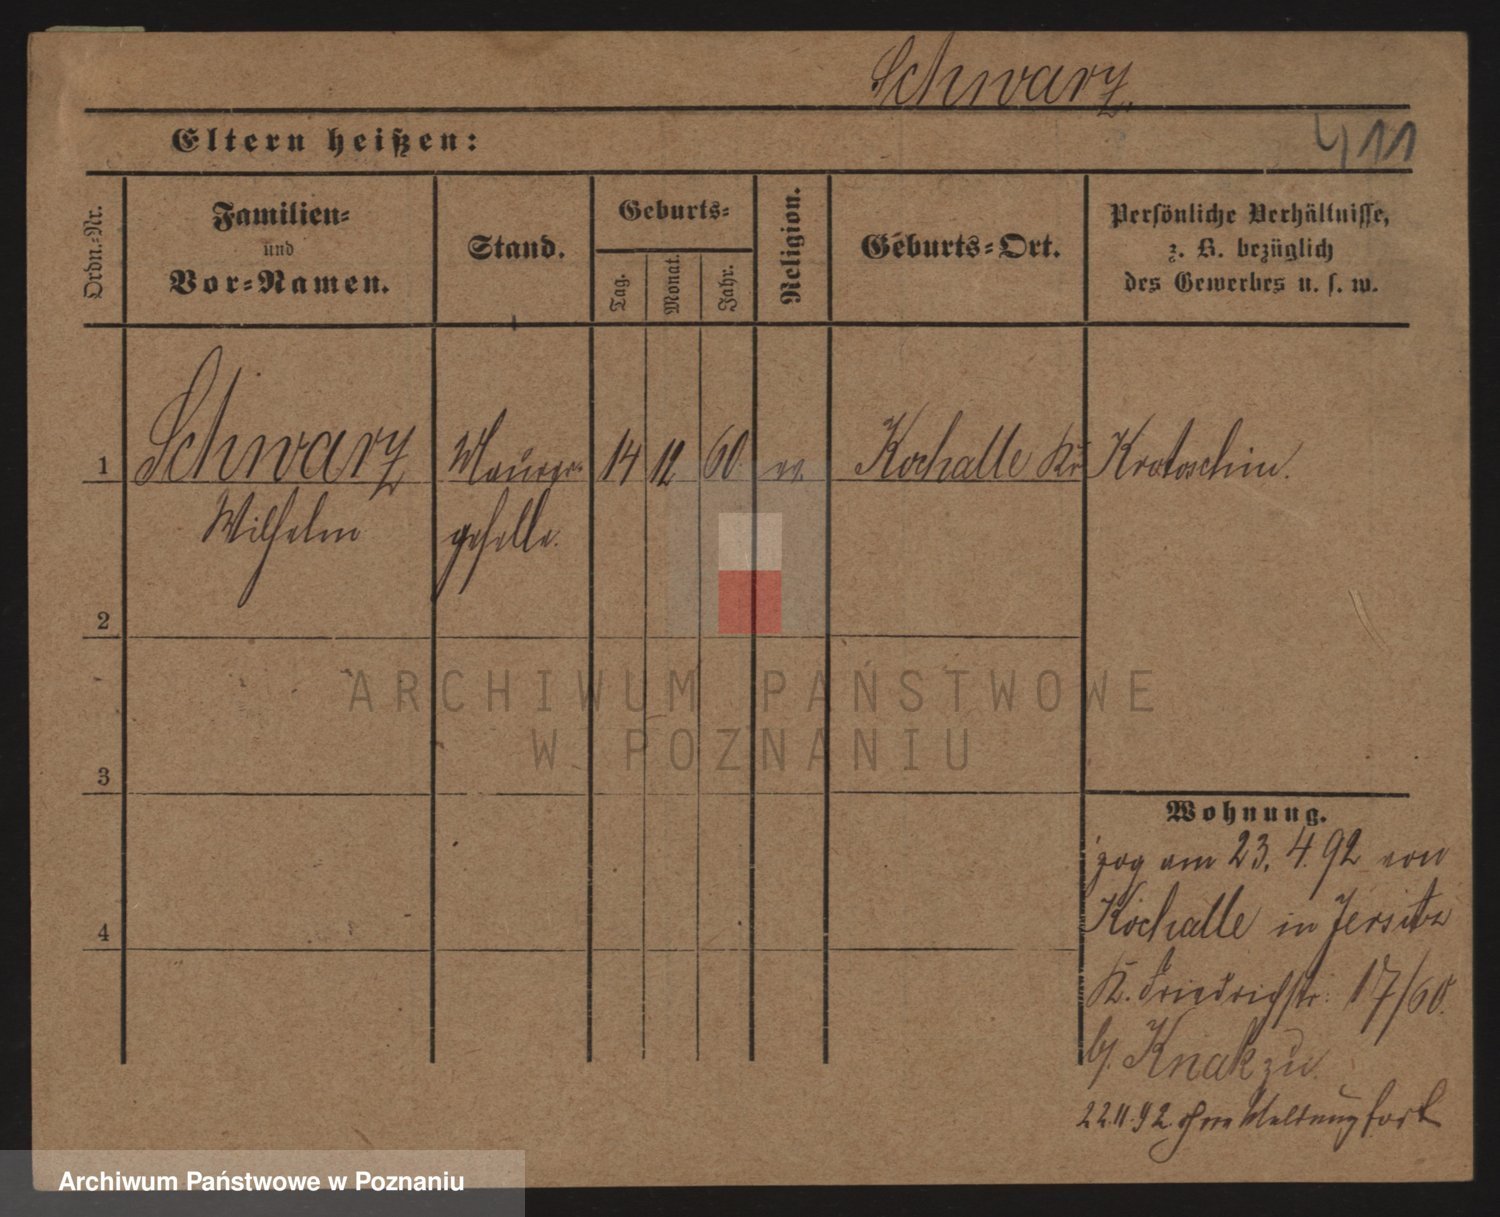 Schwarz.
Eltern heißen:
411
Ordn.-Nr.
Familien-
und
Vor-Namen.
Stand.
Geburts-
Tag.
Monat.
Jahr.
Religion.
Geburts-Ort.
Persönliche Verhältnisse,
z. B. bezüglich
des Gewerbes u. s. w.
1
Schwarz
Maurer-
14
12
60.
ev.
Kochalle Kr Krotoschin.
Wilhelm
geselle.
2
ARCHIWUM PAŃSTWOWE
W POZNANIU
3
Wohnung.
zog am 23. 4. 92 von
Kochalle in Jersitz
K. Friedrichstr. 17/60.
b/.
4
22.11.92. ohne Meldung fort
Archiwum Państwowe w Poznaniu